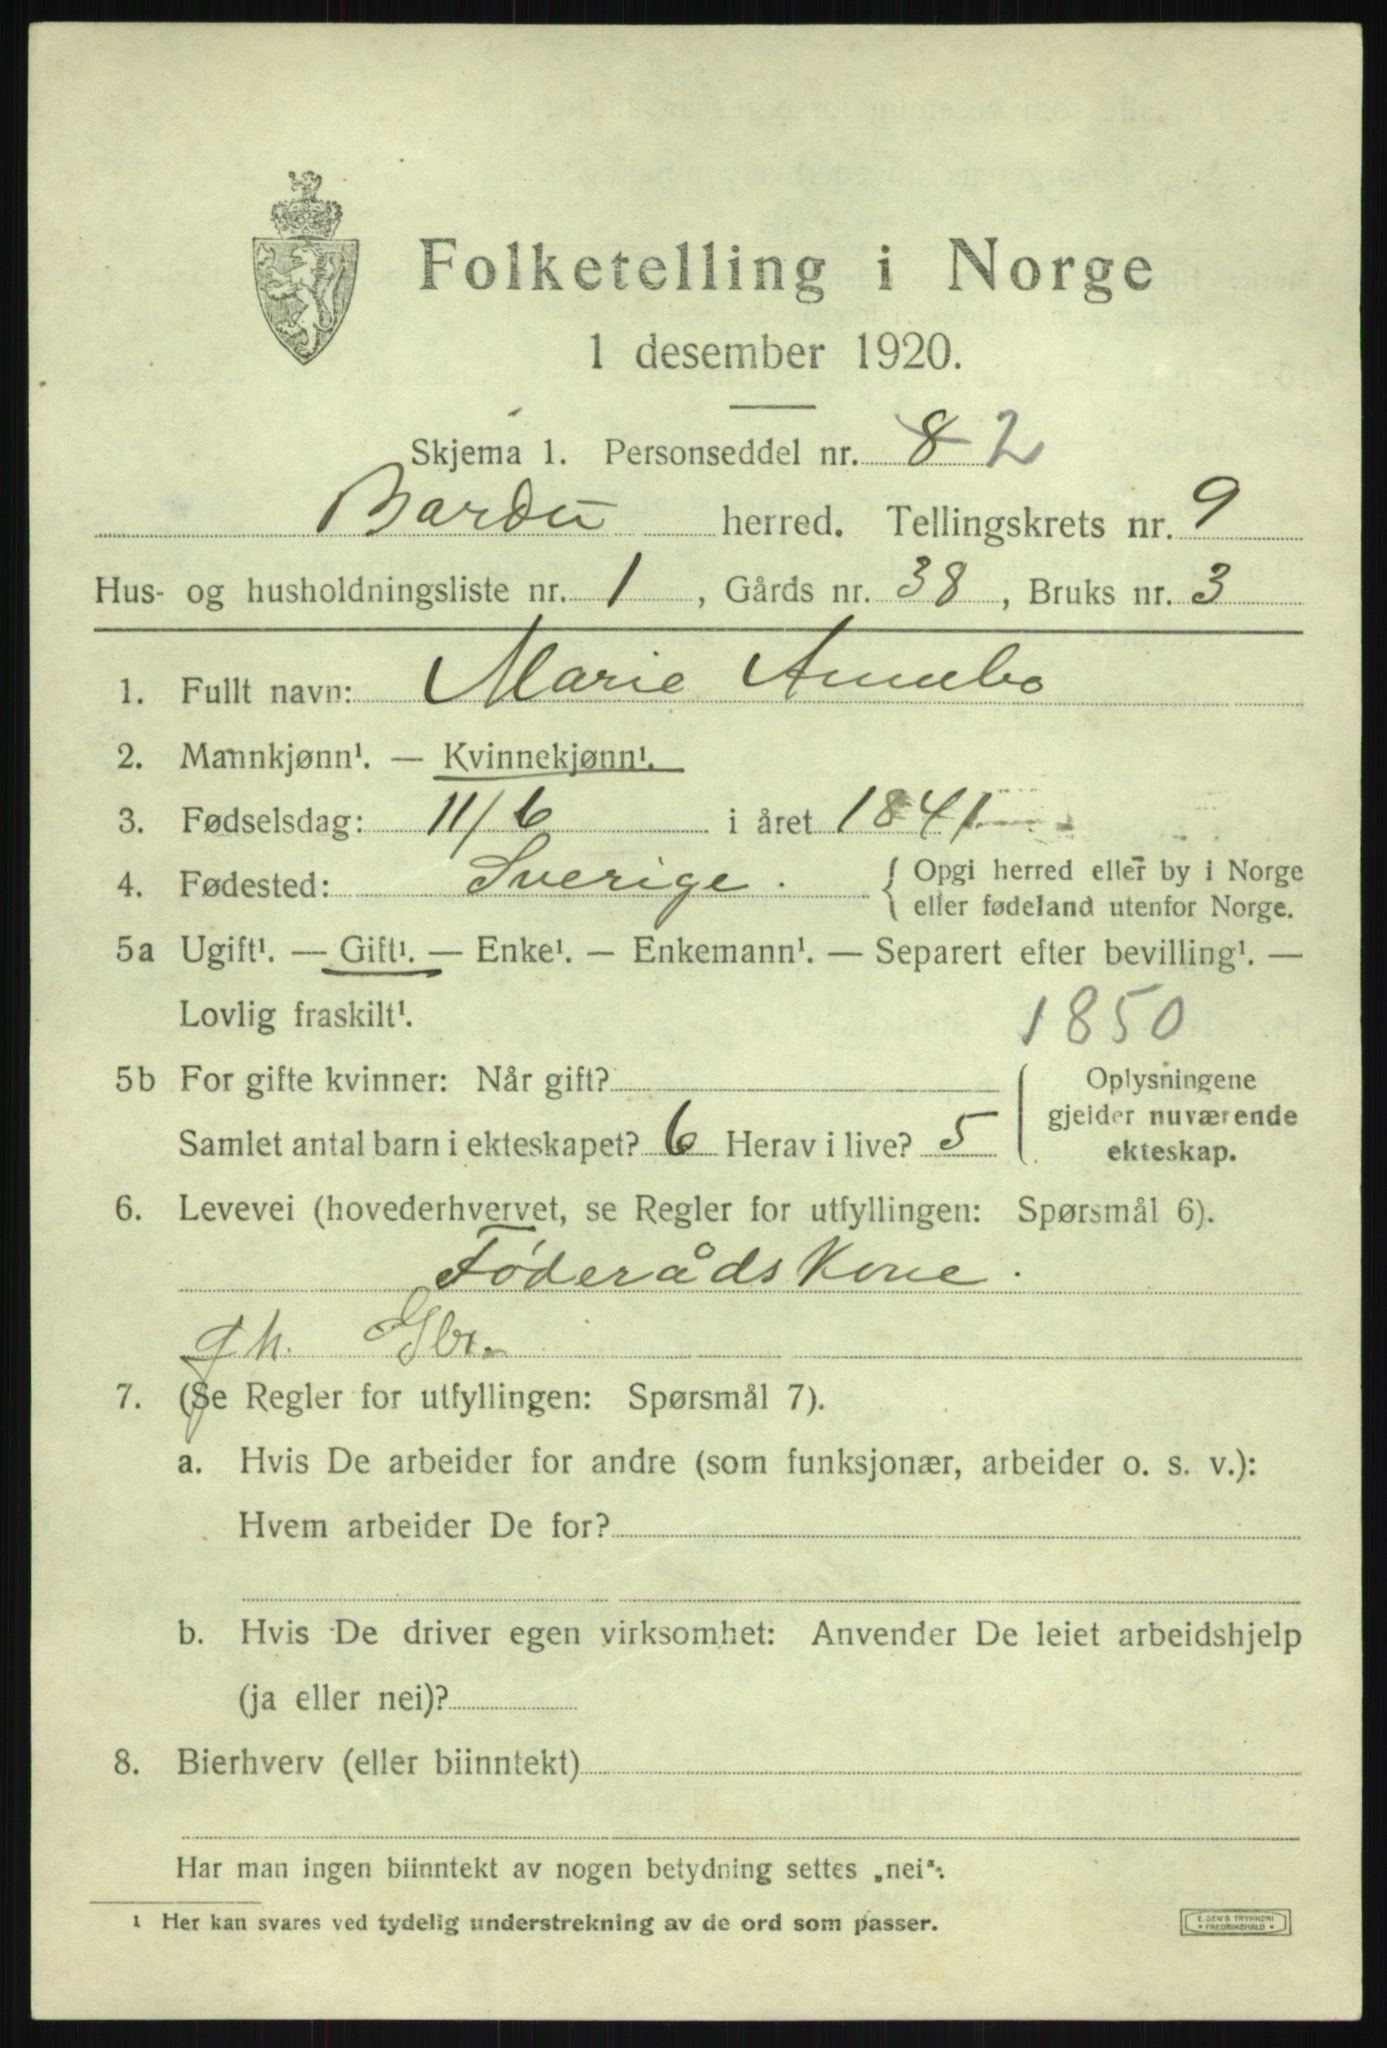 Folketelling i Norge
1 desember 1920.
Skjema 1. Personseddel nr. 8 2
Bardu herred. Tellingskrets nr. 9
Hus- og husholdningsliste nr. 1, Gårds nr. 38, Bruks nr. 3
1. Fullt navn: Marie Annebo
2. Mannkjønn¹. — Kvinnekjønn¹.
3. Fødselsdag: 11/6 i året 1841
4. Fødested: Sverige. { Opgi herred eller by i Norge
eller fødeland utenfor Norge.
5a Ugift¹. — Gift¹. — Enke¹. — Enkemann¹. — Separert efter bevilling¹. —
Lovlig fraskilt¹.
1850
5b For gifte kvinner: Når gift?
Samlet antal barn i ekteskapet? 6 Herav i live? 5
Oplysningene
gjelder nuværende
ekteskap.
6. Levevei (hovederhvervet, se Regler for utfyllingen: Spørsmål 6).
Føderådskone.
gh. Gbr.
7. (Se Regler for utfyllingen: Spørsmål 7).
a. Hvis De arbeider for andre (som funksjonær, arbeider o. s. v.):
Hvem arbeider De for?
b. Hvis De driver egen virksomhet: Anvender De leiet arbeidshjelp
(ja eller nei)?
8. Bierhverv (eller biinntekt)
Har man ingen biinntekt av nogen betydning settes „nei".
1 Her kan svares ved tydelig understrekning av de ord som passer.
E. SEM'S TRYKKERI
* FREDRIKSHALD *